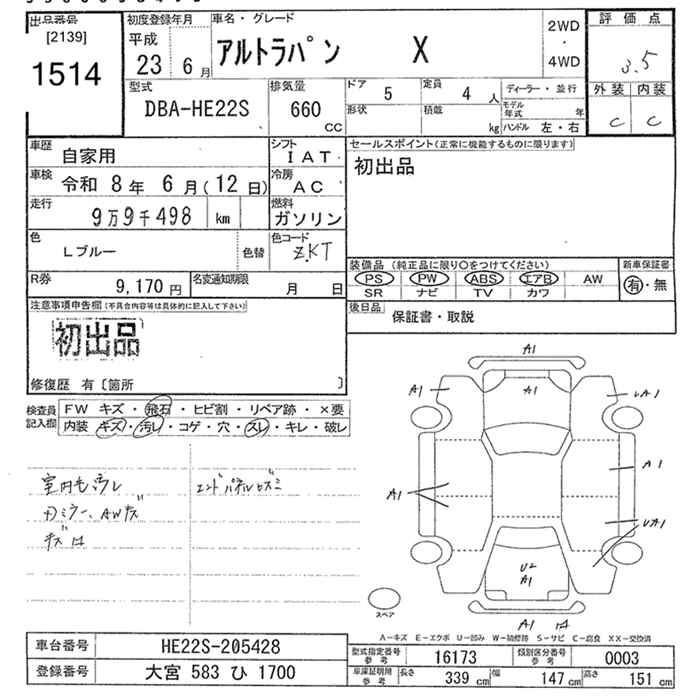 出品番号
[2139]
1514
初度登録年月
平成
23 6 月
車名・グレード
アルトラパン X
2WD
・
4WD
評価点
3.5
外装 内装
C C
型式
DBA-HE22S
排気量
660
CC
ドア 5
形状
定員 4 人
積載 kg
ディーラー・並行
モデル年式 年
ハンドル 左・右
車歴 自家用
シフト IAT
車検 令和 8年 6月(12日)
冷房 AC
走行 9万9千498 km
燃料 ガソリン
色 Lブルー
色替
色コード ZKT
R券 9,170円
名変通知期限 月 日
セールスポイント(正常に機能するものに限ります)
初出品
装備品 (純正品に限り○をつけてください)
PS PW ABS エアB AW
SR ナビ TV カワ
新車保証書
有・無
後日品 保証書・取説
注意事項申告欄(不具合内容等は具体的に記入して下さい)
初出品
修復歴 有〔箇所 〕
検査員記入欄
FW キズ・飛石・ヒビ割・リペア跡・×要
内装 キズ・汚レ・コゲ・穴・スレ・キレ・破レ
室内毛汚レ
エンドパネルヒズミ
ドミラー、AWキズ
A1
A1
A1
A1
A1
A1
U2
A1
A1
スペア
A-キズ E-エクボ U-凹み W-補修跡 S-サビ C-腐食 XX-交換済
車台番号 HE22S-205428
登録番号 大宮 583 ひ 1700
型式指定番号 参考 16173
類別区分番号 参考 0003
車庫証明用 参考 長さ 339 cm 幅 147 cm 高さ 151 cm